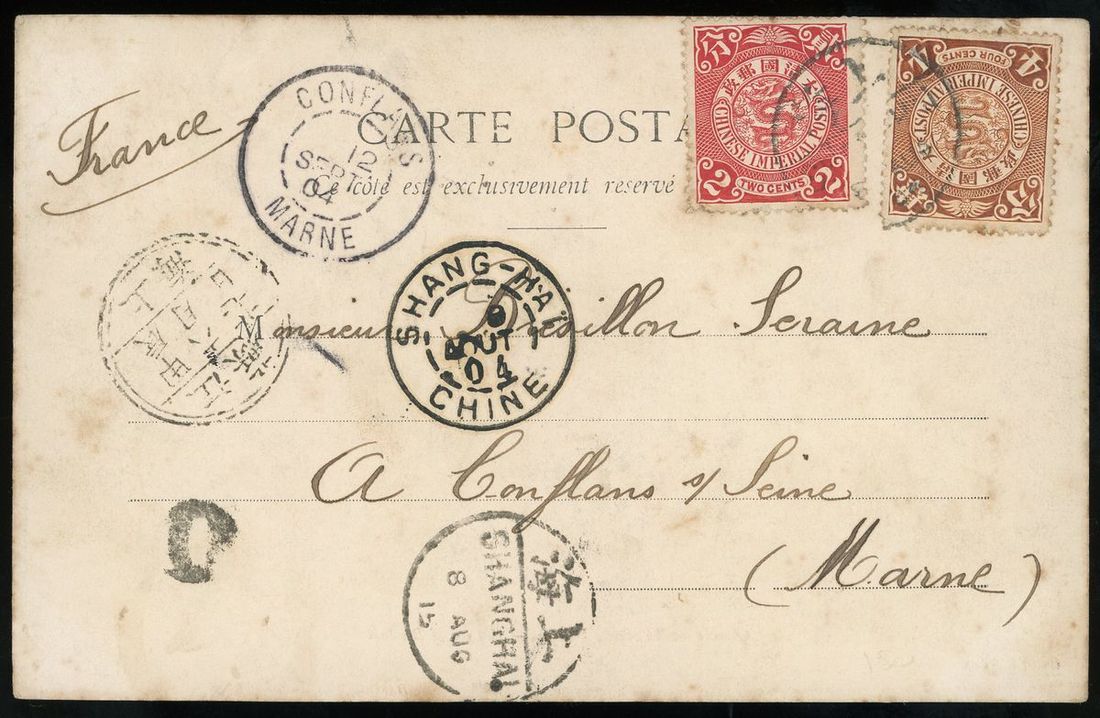 France
CARTE POSTA
Ce côté est exclusivement reservé
CONFLANS
12
SEPT
04
MARNE
貳分
大清國郵政
CHINESE IMPERIAL POST
2 TWO CENTS 2
4 FOUR CENTS 4
CHINESE IMPERIAL POST
大清國郵政
SHANG-HAI
9
AOUT
04
CHINE
Monsieur Seraine
A Conflans s/ Seine
(Marne)
上海
SHANGHAI
8 AUG
15